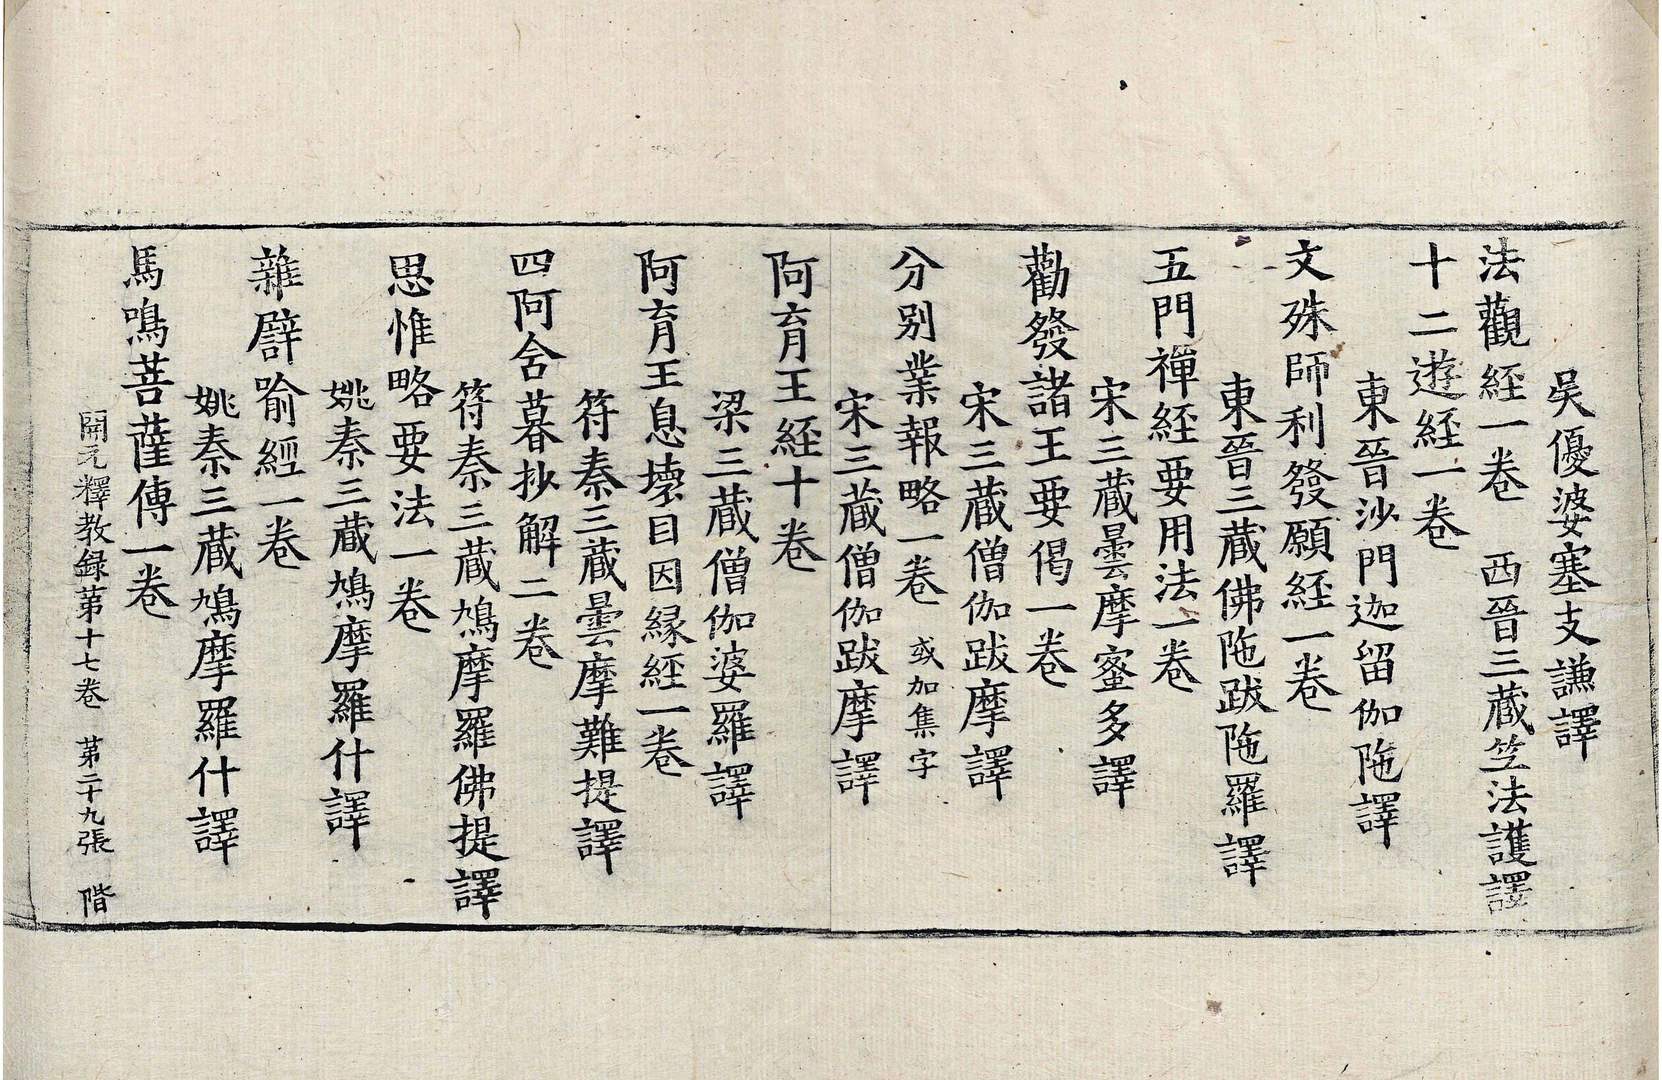 吳優婆塞支謙譯
法觀經一卷　西晉三藏竺法護譯
十二遊經一卷
東晉沙門迦留伽陁譯
文殊師利發願經一卷
東晉三藏佛陁跋陁羅譯
五門禪經要用法一卷
宋三藏曇摩蜜多譯
勸發諸王要偈一卷
宋三藏僧伽跋摩譯
分別業報略一卷　或加集字
宋三藏僧伽跋摩譯
阿育王經十卷
梁三藏僧伽婆羅譯
阿育王息壞目因縁經一卷
符秦三藏曇摩難提譯
四阿含暮抄解二卷
符秦三藏鳩摩羅佛提譯
思惟略要法一卷
姚秦三藏鳩摩羅什譯
雜譬喻經一卷
姚秦三藏鳩摩羅什譯
馬鳴菩薩傳一卷
開元釋教録第十七卷　第二十九張　階